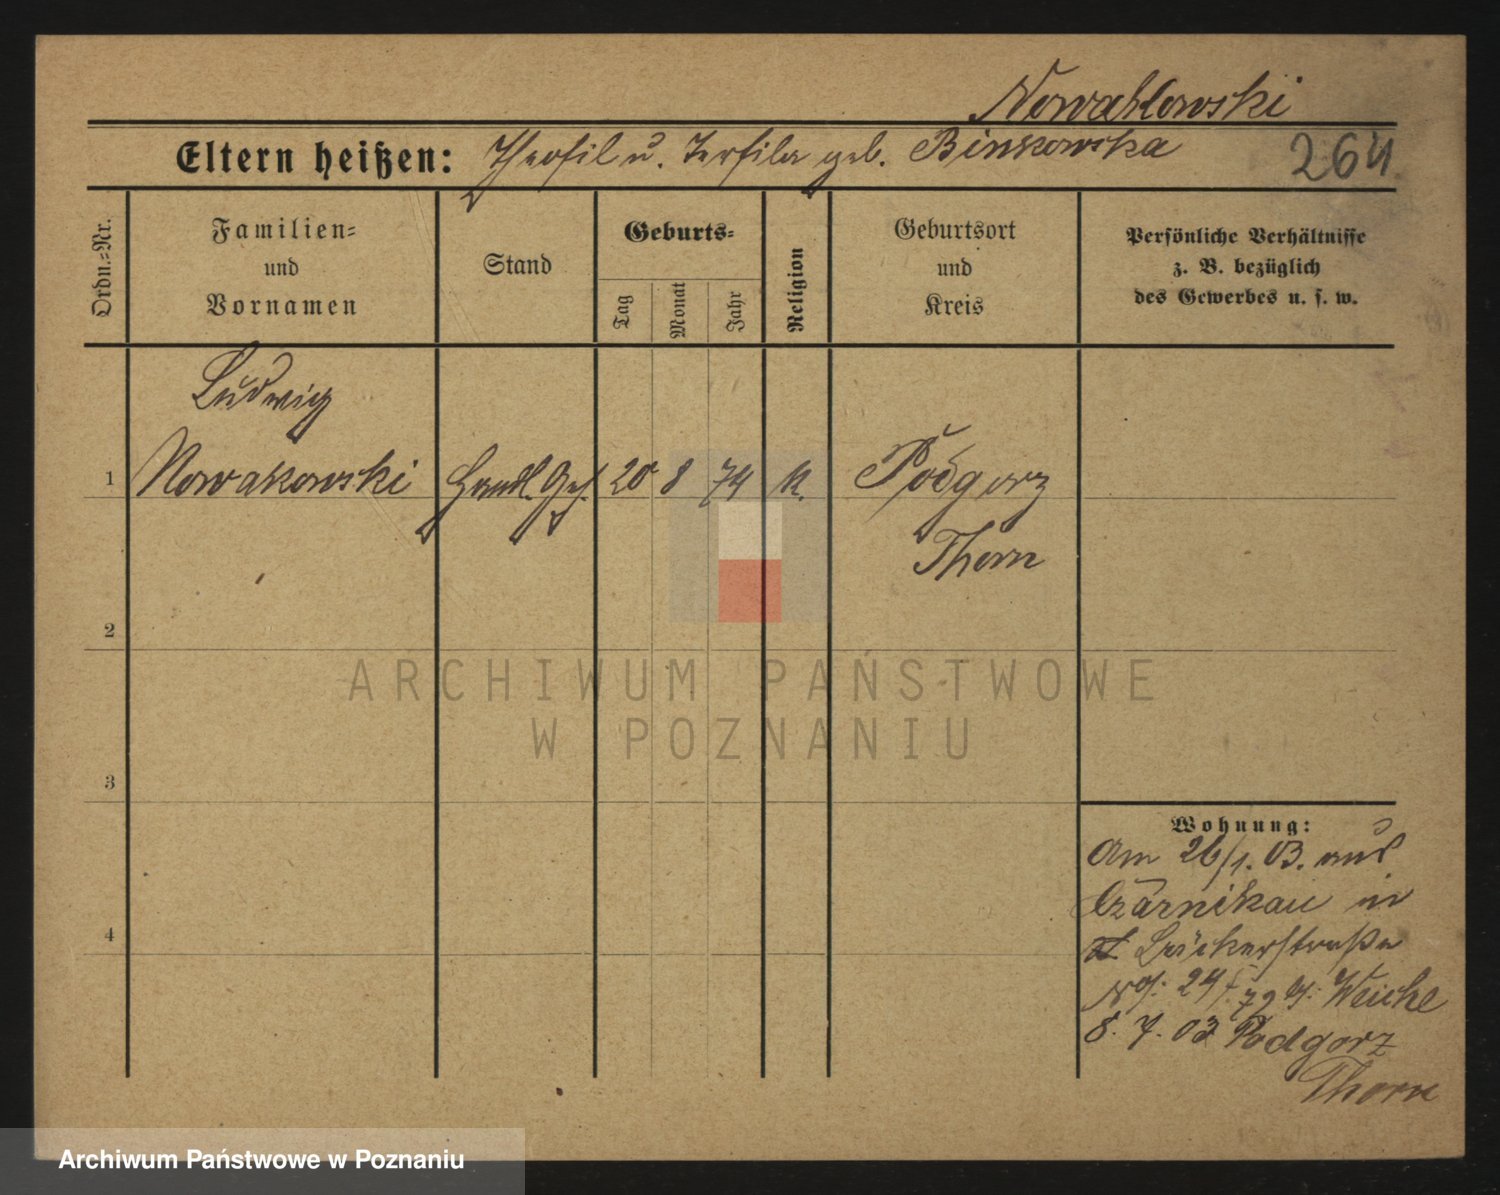 Nowakowski
Eltern heißen: Theofil u. Terfila geb. Binkowska
264
Ordn.-Nr.
Familien-
und
Vornamen
Stand
Geburts-
Tag
Monat
Jahr
Religion
Geburtsort
und
Kreis
Persönliche Verhältnisse
z. B. bezüglich
des Gewerbes u. s. w.
Ludwig
1 Nowakowski Handl. Geh. 20 8 74 K. Podgorz
Thorn
2
3
4
ARCHIWUM PAŃSTWOWE
W POZNANIU
Wohnung:
Am 26/1. 03. aus
Czarnikau in
Bäckerstraße
24 b: Weiche
8. 7. 03 Podgorz
Thorn
Archiwum Państwowe w Poznaniu